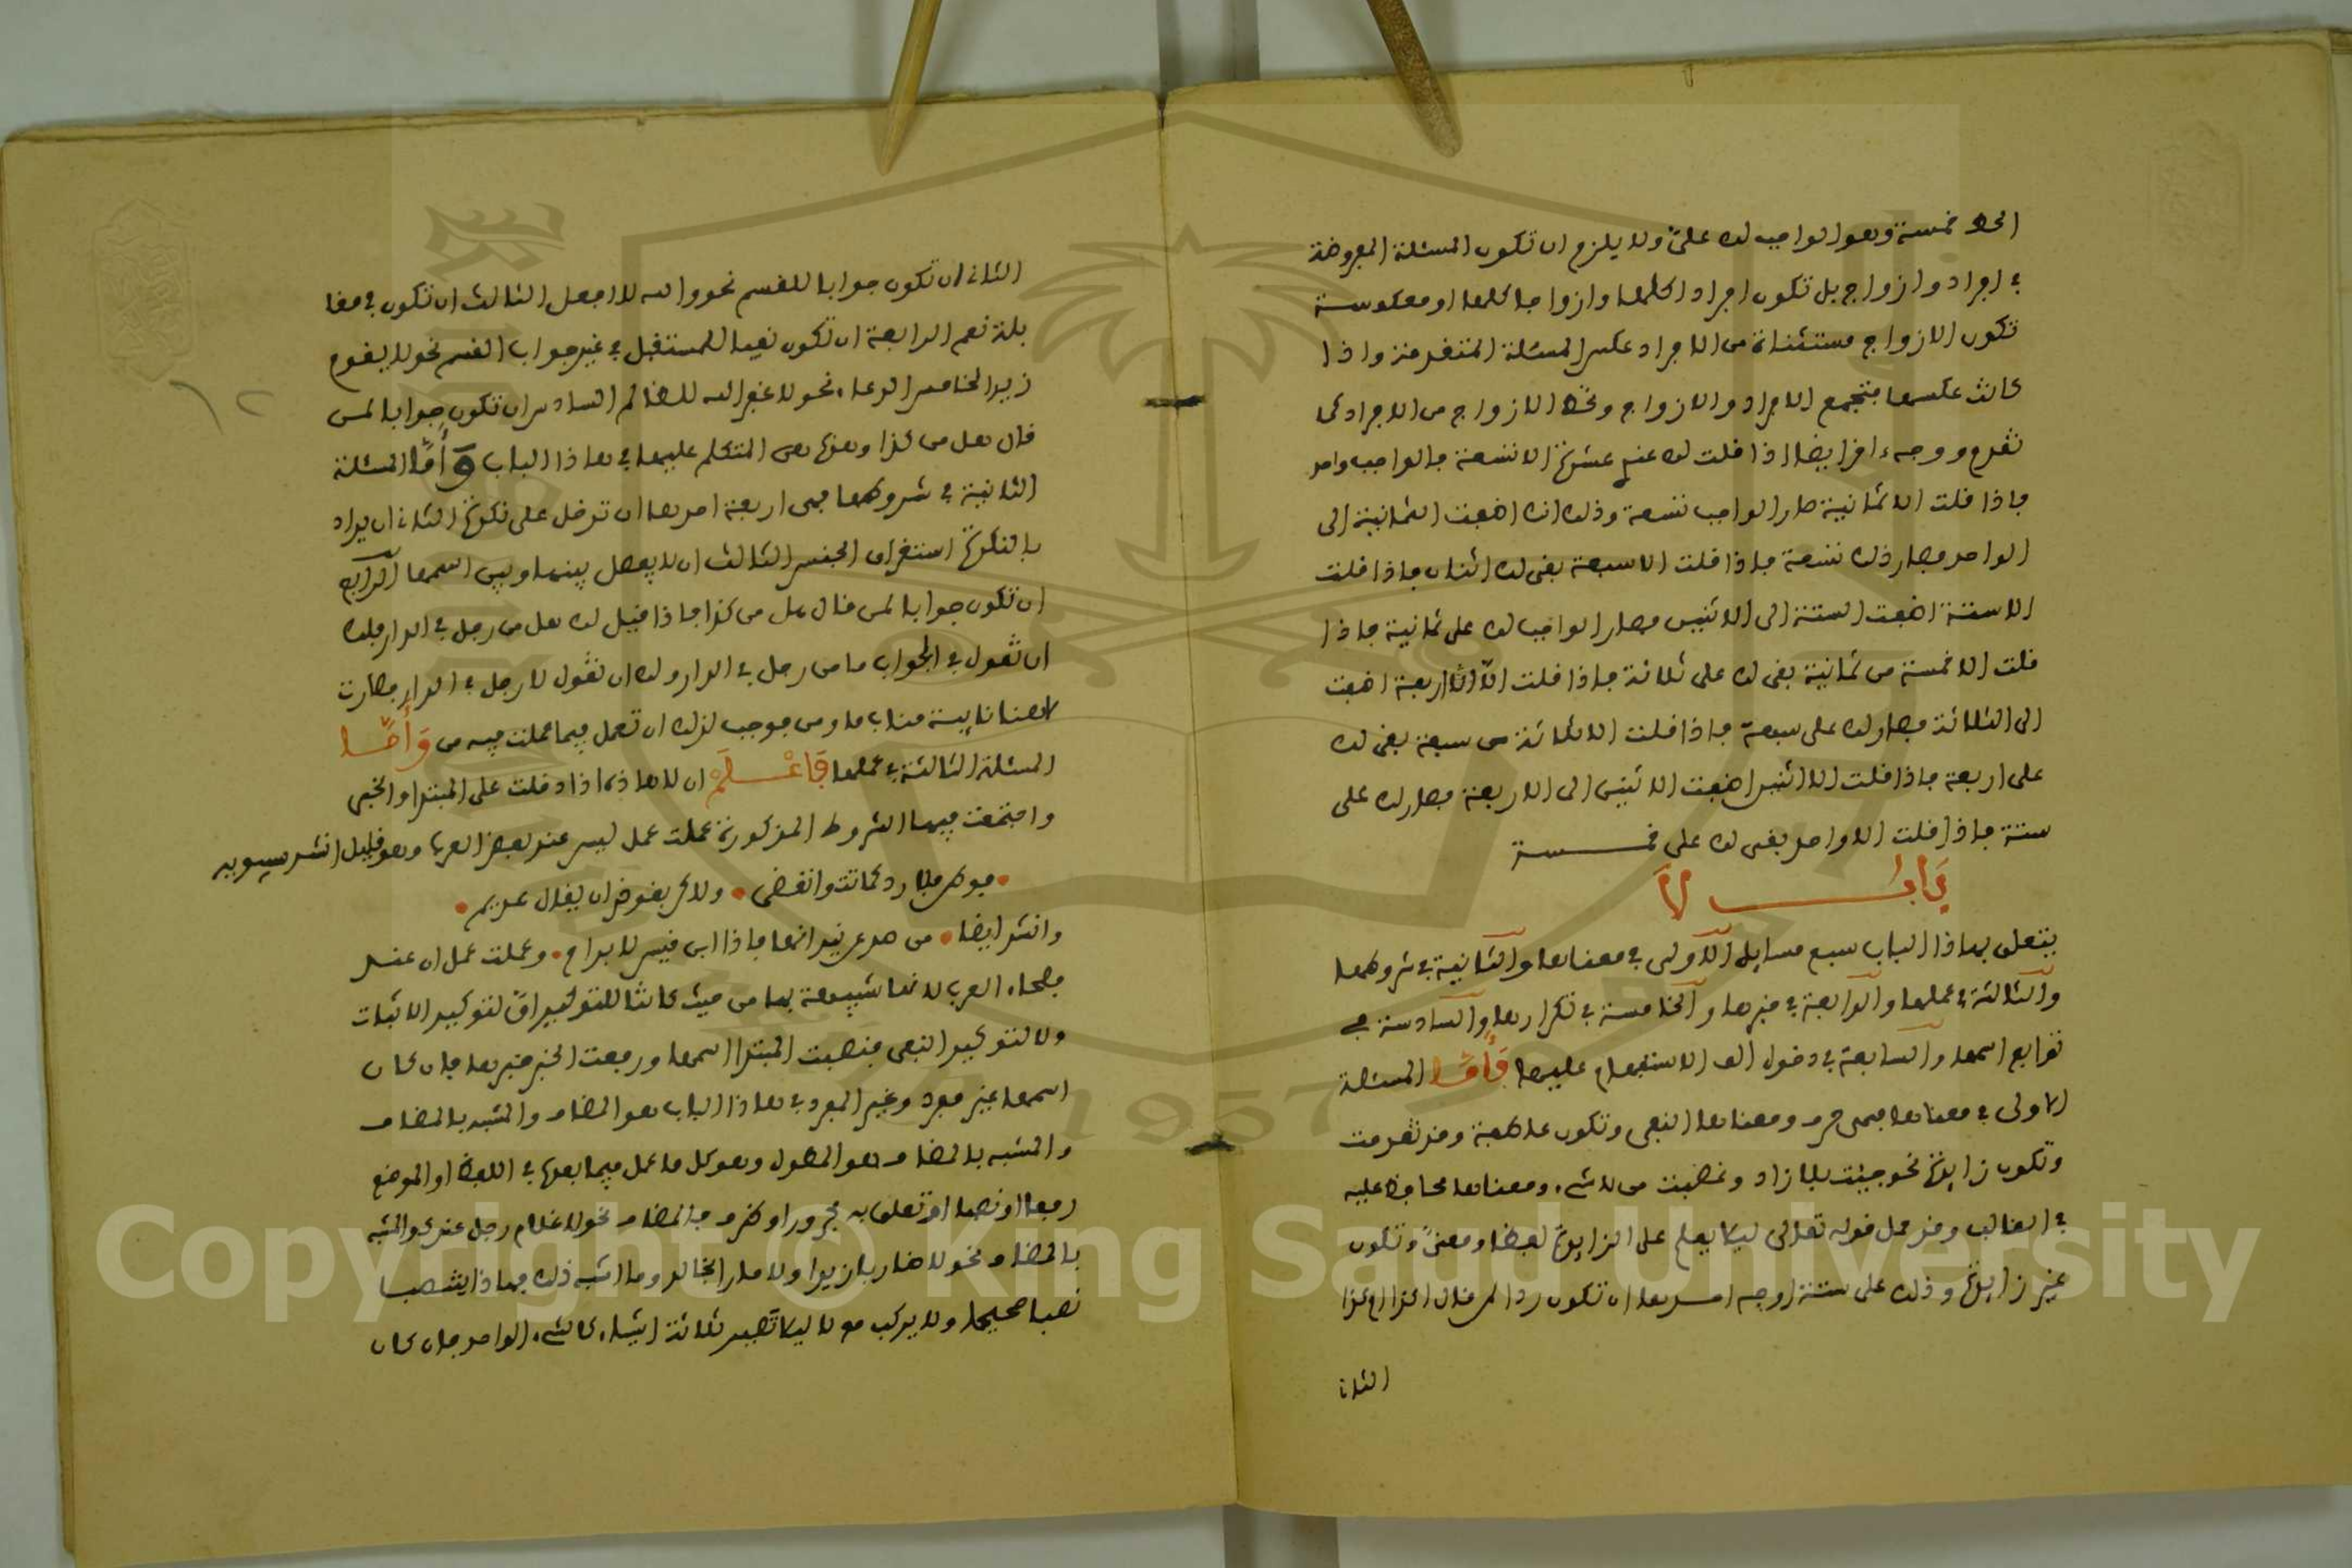 الحط خمسة وهو الواجب له علىّ ولا يلزم ان تكون المسئلة المفروضة
في افراد وازواج بل تكون افرادا كلها وازواجا كلها او معكوسة
تكون الازواج مستثناة من الافراد عكس المسئلة المتقدمة واذا
كانت عكسها فتجمع الافراد والازواج وتحط الازواج من الافراد كما
تقدم ووجه ءاخر ايضا اذا قلت له عندي عشرة الا تسعة فالواجب واحد
فاذا قلت الا ثمانية صار الواجب تسعة وذلك انك اضفت الثمانية الى
الواحد فصار ذلك تسعة فاذا قلت الا سبعة بقى لك اثنان فاذا قلت
الا ستة اضفت الستة الى الاثنين فصار الواجب له على ثمانية فاذا
قلت الا خمسة من ثمانية بقى له على ثلاثة فاذا قلت الا اربعة اضفت
الى الثلاثة فصار لك على سبعة فاذا قلت الا ثلاثة من سبعة بقى لك
على اربعة فاذا قلت الا اثنين اضفت الاثنين الى الاربعة فصار لك على
ستة فاذا قلت الا واحد بقى له على خمسة
باب لا
يتعلق بهاذا الباب سبع مسايل الاولى في معناها والثانية في شروطها
والثالثة في عملها والرابعة في خبرها والخامسة في تكرارها والسادسة في
توابع اسمها والسابعة في دخول الف الاستفهام عليها فأما المسئلة
الاولى في معناها فهى حرف ومعناها النفى وتكون عاطفة وقد تقدمت
وتكون زايدة نحو جيئت بلا زاد وغضبت من لا شىء ومعناها محافظ عليه
في الغالب وقد حمل قوله تعالى ليلا يعلم على الزايدة لفظا ومعنىً وتكون
غير زايدة وذلك على ستة اوجه احدها ان تكون ردا لمن قال اكذا ام كذا
الثانى
الثانى ان تكون جوابا للقسم نحو والله لا افعل الثالث ان تكون في مقا
بلة نعم الرابعة ان تكون نفيا للمستقبل في غير جواب القسم نحو لا يقوم
زيد الخامس الدعاء نحو لا غفر الله للظالم السادس ان تكون جوابا لمن
قال هل من كذا وهذه هى المتكلم عليها في هاذا الباب وأمّا المسئلة
الثانية في شروطها فهى اربعة احدها ان تدخل على نكرة الثانى ان يراد
بالنكرة استغراق الجنس الثالث ان لا يفصل بينها وبين اسمها الرابع
ان تكون جوابا لمن قال هل من كذا فاذا قيل لك هل من رجل في الدار فلك
ان تقول في الجواب ما من رجل في الدار ولك ان تقول لا رجل في الدار فصارت
لا هنا نايبة مناب ما ومن فوجب لذلك ان تعمل فيما عملت فيه من وَأَمّا
المسئلة الثالثة في عملها فَاعْلَمْ ان لا هاذه اذا دخلت على المبتدا والخبر
واجتمعت فيها الشروط المذكورة عملت عمل ليس عند بعض العرب وهو قليل انشد سيبويه
وانشد ايضا من صد عن نيرانها فانا ابن قيس لا براح وعملت عمل ان عند
فصحاء العرب لانها شبيهة بها من حيث كانتا للتوكيد انّ لتوكيد الاثبات
ولا لتوكيد النفى فنصبت المبتدا اسمها ورفعت الخبر خبرها فان كان
اسمها غير مفرد وغير المفرد في هاذا الباب هو المضاف والمشبه بالمضاف
والمشبه بالمضاف هو المطول وهو كل ما عمل فيما بعده في اللفظ او الموضع
رفعا او نصبا او تعلق به مجرور او ظرف فالمضاف نحو لا غلام رجل عندك والمشبه
بالمضاف نحو لا ضاربا زيدا ولا مارا بخالد وما اشبه ذلك فهاذا ينتصب
نصبا صحيحا ولا يركب مع لا ليلا تصير ثلاثة اشياء كالشىء الواحد فان كان
Copyright © King Saud University
1957